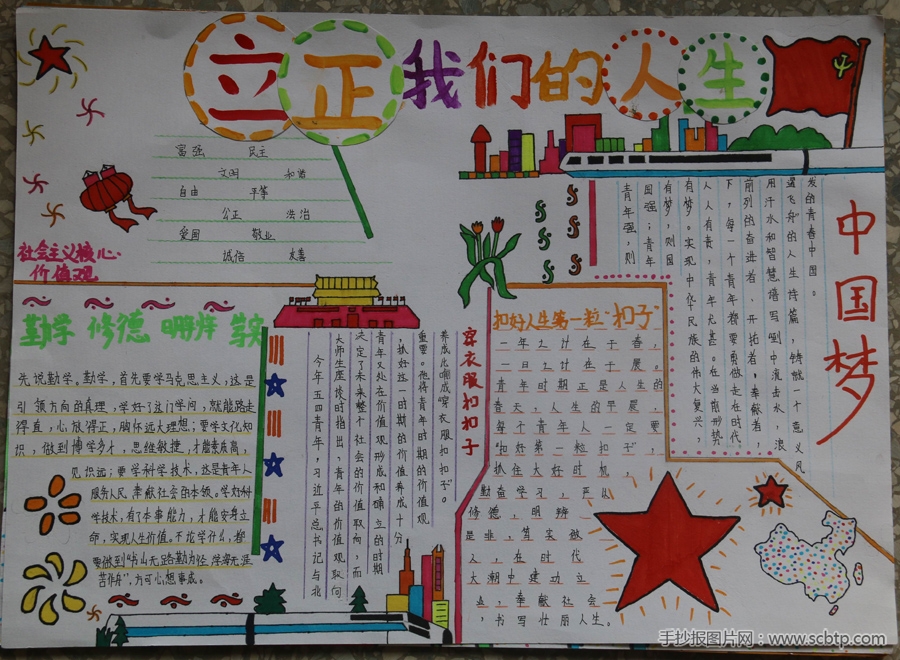 立正我们的人生
富强 民主
文明 和谐
自由 平等
公正 法治
爱国 敬业
诚信 友善
社会主义核心
价值观
勤学 修德 明辨 笃实
先说勤学。勤学，首先要学马克思主义，这是
引领方向的真理，学好了这门学问，就能路走
得直，心放得正，胸怀远大理想；要学文化知
识，做到博学多才，思维敏捷，才能素质高，
见识远；要学科学技术，这是青年人
服务人民 奉献社会的本领。学好科
学技术，有了本事能力，才能安身立
命，实现人生价值。不论学什么，都
要做到“书山无路勤为径 学海无涯
苦作舟”，方可心想事成。
穿衣服扣扣子
今年五四青年，习近平总书记与北
大师生座谈时指出，青年的价值观取向
决定了未来整个社会的价值取向，而
青年又处在价值观形成和确立的时期
，抓好这一时期的价值养成十分
重要。他将青年时期的价值观
养成比喻成穿衣服扣扣子。
扣好人生第一粒“扣子”
一年之计在于春，
一日之计在于晨。
青年时期正是人生的
春天，人生的早晨，
每个青年人一定要
“扣好第一粒扣子”，
抓住大好时机，
勤奋学习，严以
修德，明辨
是非，笃实做
人，在时代
大潮中建功立
业，奉献社会
，书写壮丽人生。
中国梦
青年强，则
国强；青年
有梦，则国
有梦。实现中华民族的伟大复兴，
人人有责，青年尤甚。在当前形势
下，每一个青年都要勇做走在时代
前列的奋进者、开拓者，奉献者，
用汗水和智慧谱写到中流击水，浪
遏飞舟的人生诗篇，铸就一个意气风
发的青春中国。
手抄报图片网：www.scbtp.com